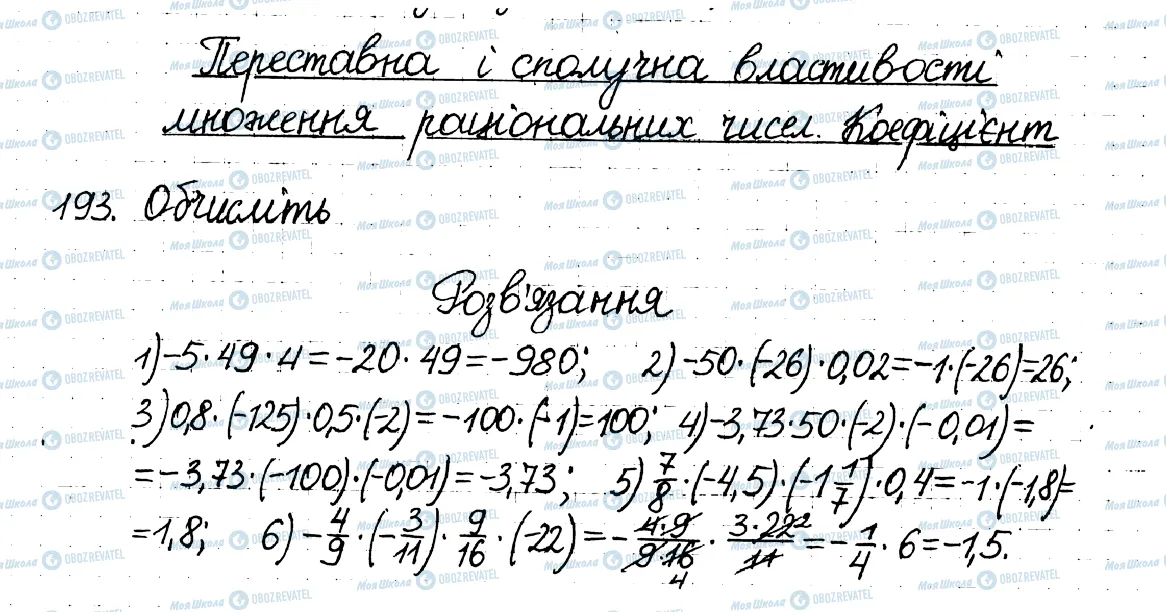 Переставна і сполучна властивості
множення раціональних чисел. Коефіцієнт
193. Обчисліть
Розв'язання
1) -5 · 49 · 4 = -20 · 49 = -980; 2) -50 · (-26) · 0,02 = -1 · (-26) = 26;
3) 0,8 · (-125) · 0,5 · (-2) = -100 · (-1) = 100; 4) -3,73 · 50 · (-2) · (-0,01) =
= -3,73 · (-100) · (-0,01) = -3,73; 5) 7/8 · (-4,5) · (-1 1/7) · 0,4 = -1 · (-1,8) =
= 1,8; 6) -4/9 · (-3/11) · 9/16 · (-22) = - 4·9/9·16 4 · 3·22 2/11 = -1/4 · 6 = -1,5.
МояШкола OBOZREVATEL